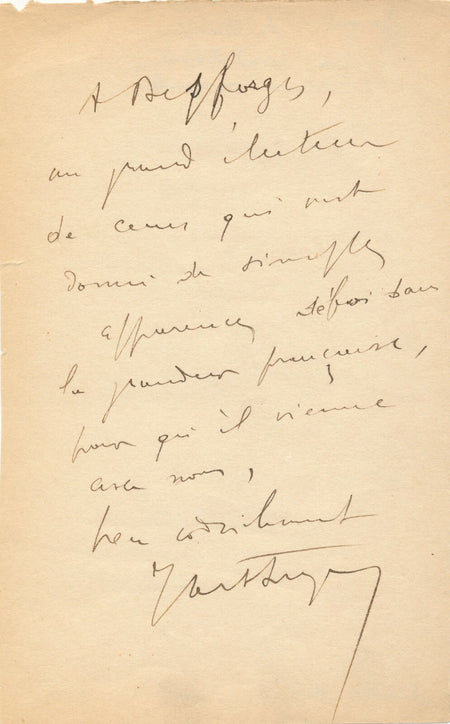 A Desforges,
au grand électeur
de ceux qui ont
donné de simples
apparences
la grandeur française,
pour qu'il vienne
avec nous,
bien cordialement